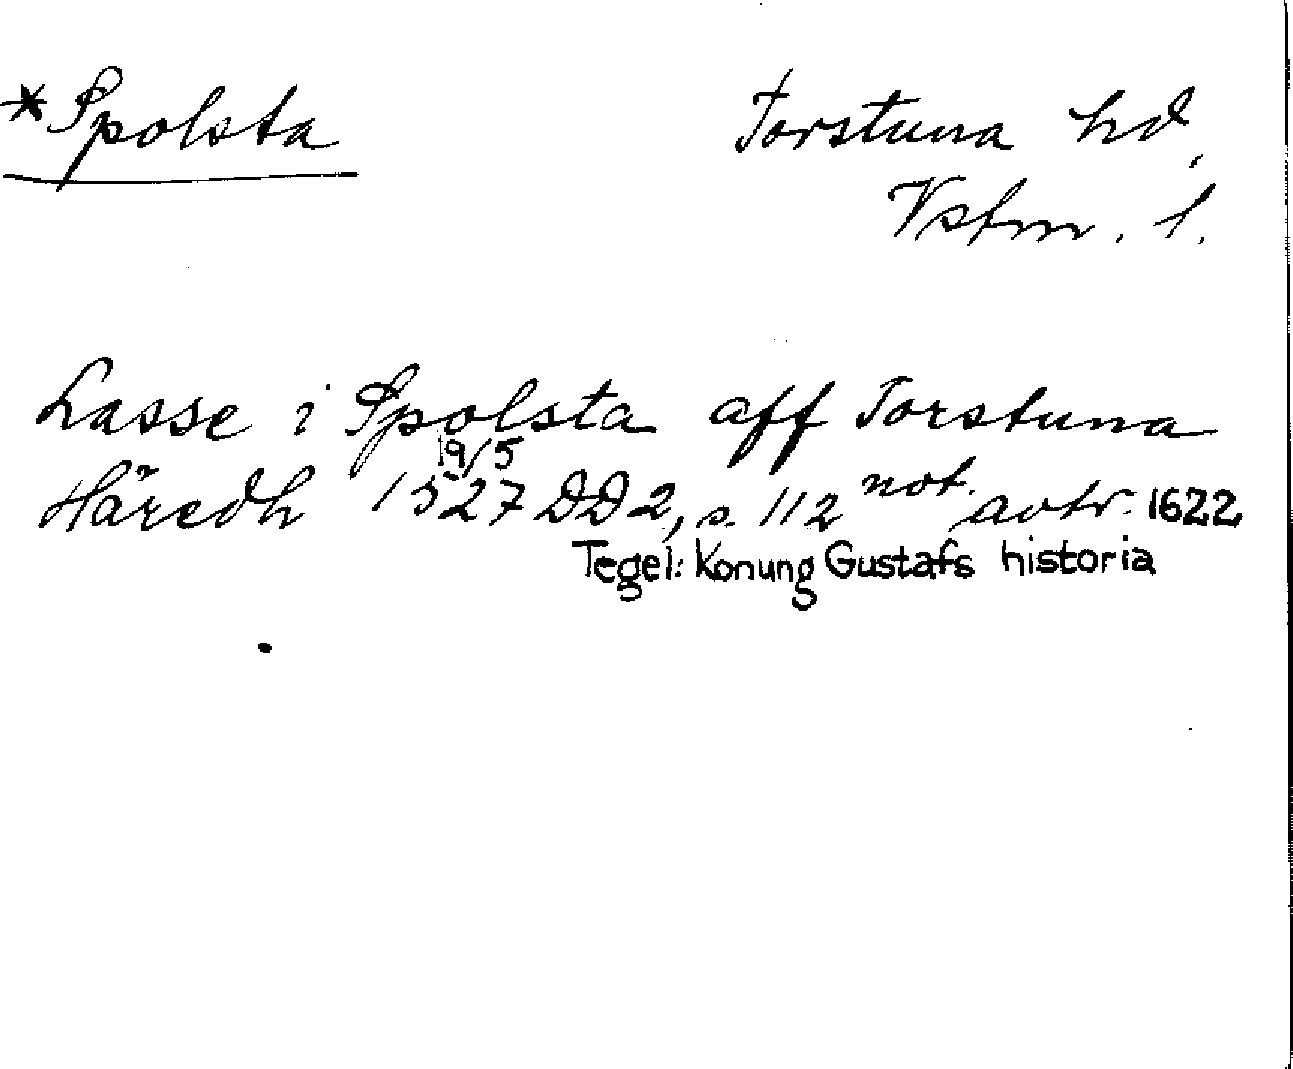 *Spolsta
Torstuna hd,
Vstm. l.
Lasse i Spolsta aff Torstuna
19/5
Häredh 1527 DD2, s. 112 not. avtr. 1622
Tegel: Konung Gustafs historia